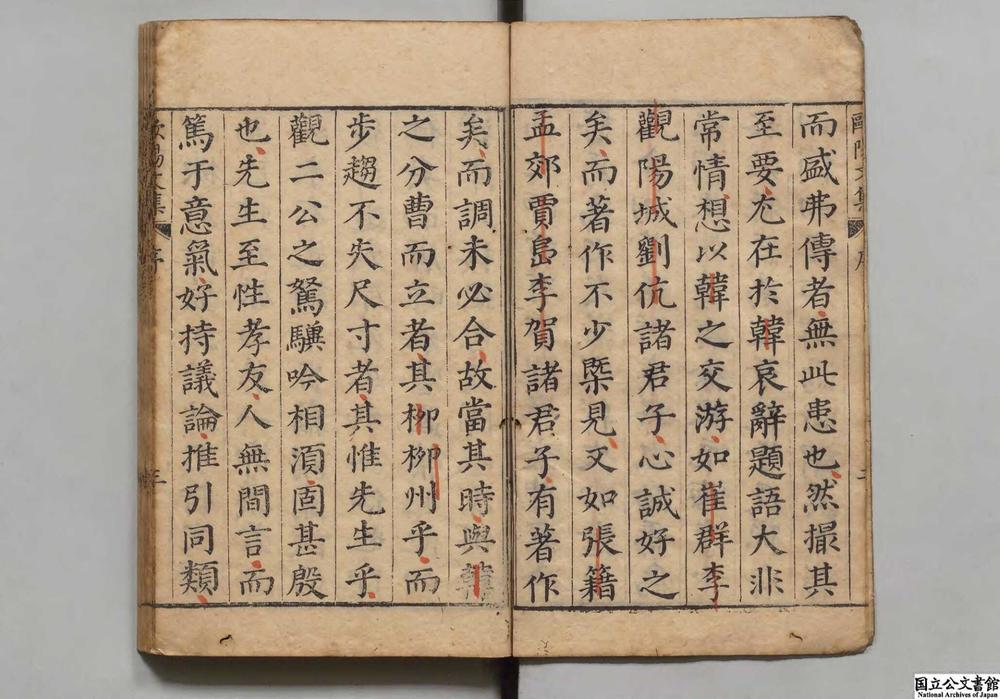 而盛弗傳者無此患也然撮其
至要尢在於韓哀辭題語大非
常情想以韓之交游如崔群李
觀陽城劉伉諸君子心誠好之
矣而著作不少槩見又如張籍
孟郊賈島李賀諸君子有著作
矣而調未必合故當其時與韓
之分曹而立者其柳柳州乎而
步趨不失尺寸者其惟先生乎
觀二公之駑驥吟相須固甚殷
也先生至性孝友人無間言而
篤于意氣好持議論推引同類
序
国立公文書館
National Archives of Japan